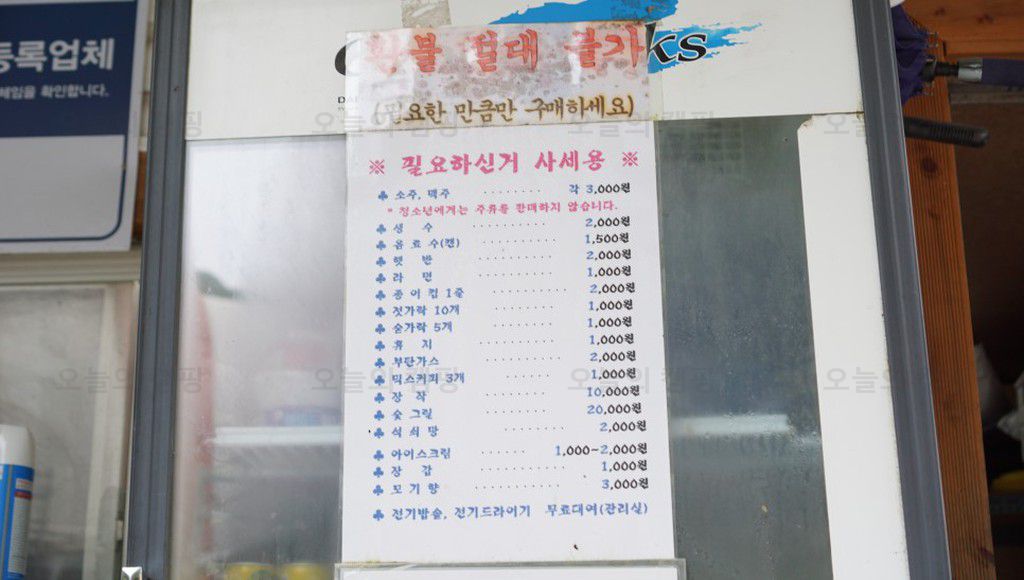 등록업체
체임을 확인합니다.
ks
환불 절대 불가
(필요한 만큼만 구매하세요)
※ 필요하신거 사세용 ※
♣ 소주, 맥주 ········ 각 3,000원
* 청소년에게는 주류를 판매하지 않습니다.
♣ 생 수 ··········· 2,000원
♣ 음 료 수(캔) ··········· 1,500원
♣ 햇 반 ··········· 2,000원
♣ 라 면 ··········· 1,000원
♣ 종 이 컵 1줄 ··········· 2,000원
♣ 젓가락 10개 ········ 1,000원
♣ 숟가락 5개 ········ 1,000원
♣ 휴 지 ·········· 1,000원
♣ 부탄가스 ··········· 2,000원
♣ 믹스커피 3개 ······· 1,000원
♣ 장 작 ·········· 10,000원
♣ 숯 그릴 ········· 20,000원
♣ 석 쇠 망 ········· 2,000원
♣ 아이스크림 ······ 1,000~2,000원
♣ 장 갑 ············ 1,000원
♣ 모 기 향 ············ 3,000원
♣ 전기밥솥, 전기드라이기 무료대여(관리실)
오늘의캠핑